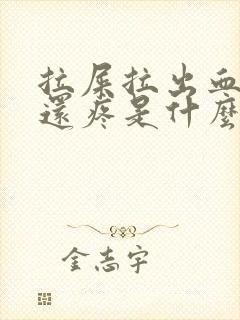 拉屎拉出血
還疼是什麼
金志宇